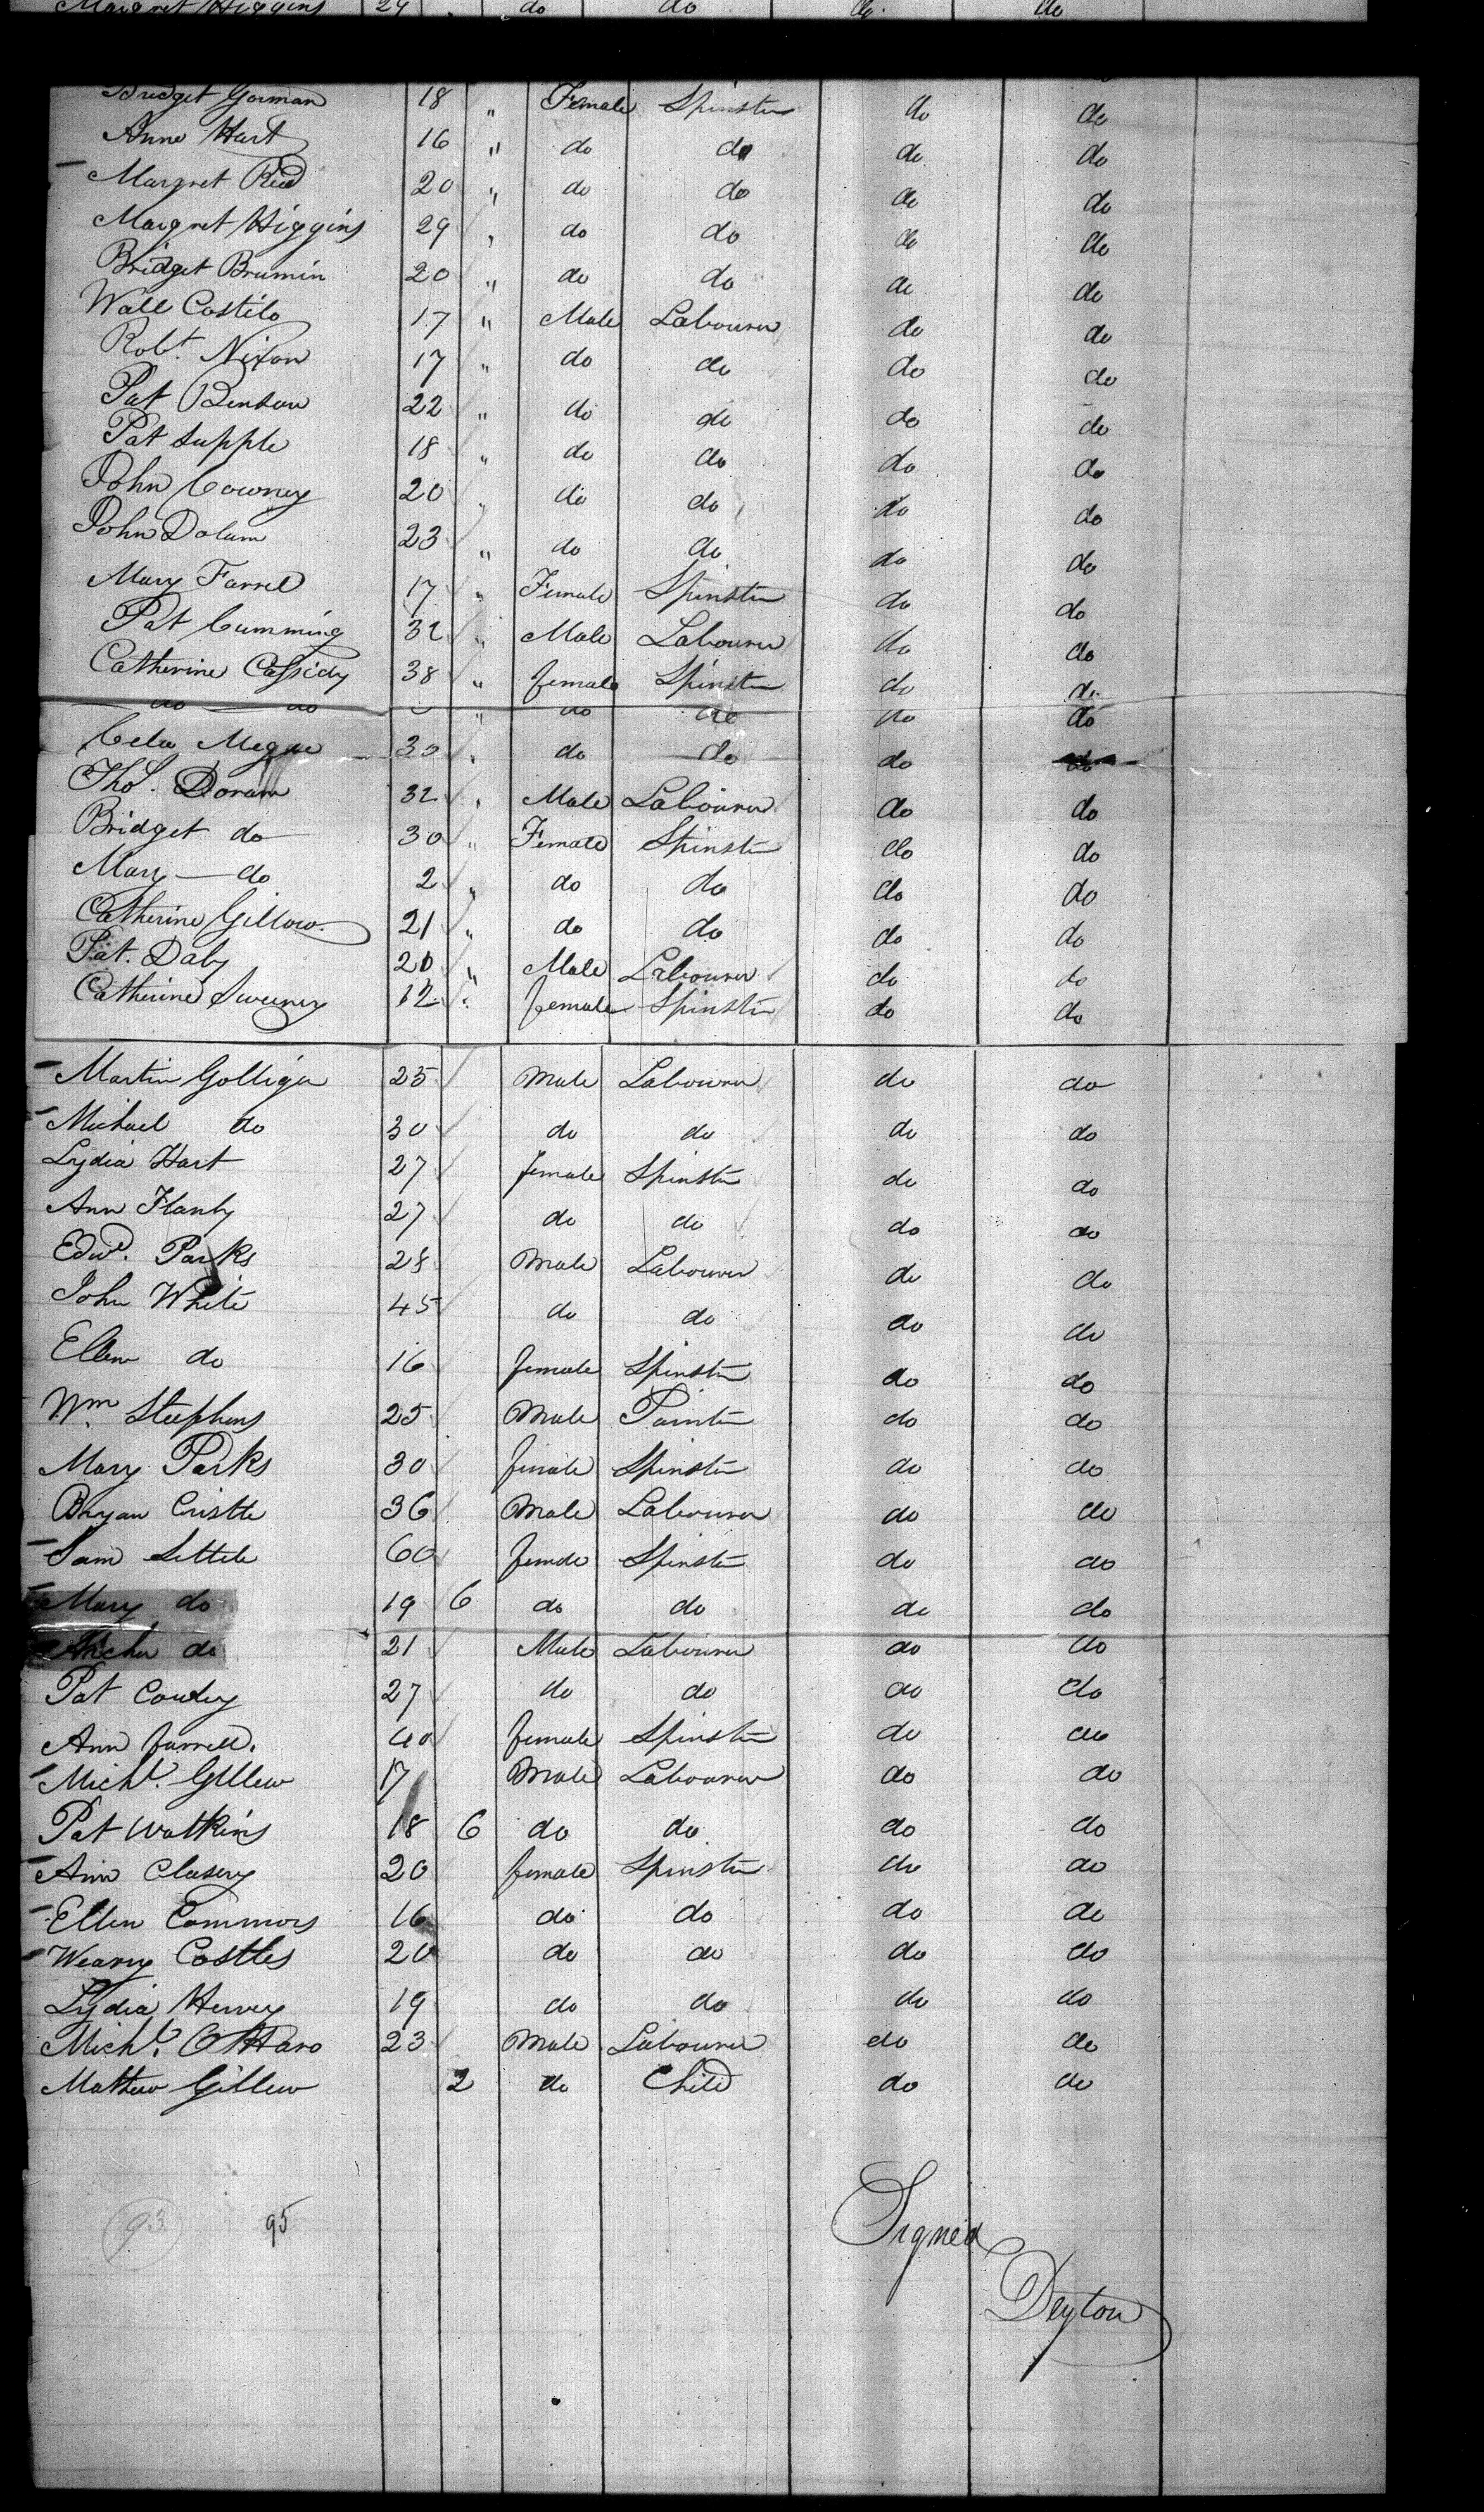 Margret Higgins 29 do do do do
Bridget Gorman 18 " Female Spinster do do
Anne Hart 16 " do do do do
Margret Reid 20 " do do do do
Margret Higgins 29 " do do do do
Bridget Brumin 20 " do do do do
Wall Costilo 17 " Male Labourer do do
Robt. Nixon 17 " do do do do
Pat Benson 22 " do do do do
Pat Supple 18 " do do do do
John Cowney 20 " do do do do
John Dolum 23 " do do do do
Mary Farrel 17 " Female Spinster do do
Pat Cumming 32 " Male Labourer do do
Catherine Cassidy 38 " female Spinster do do
do do " do do do do
Celia Megue 30 " do do do do
Thos. Doram 32 " Male Labourer do do
Bridget do 30 " Female Spinster do do
Mary do 2 " do do do do
Catherine Gillow. 21 " do do do do
Pat. Daly 20 " Male Labourer do do
Catherine Sweeney 12 " female Spinster do do
Martin Golliger 25 Male Labourer do do
Michael do 30 do do do do
Lydia Hart 27 female Spinster do do
Ann Flanly 27 do do do do
Edwd. Parks 28 Male Labourer do do
John White 45 do do do do
Ellen do 16 female Spinster do do
Wm. Steephens 25 Male Painter do do
Mary Parks 30 female Spinster do do
Bryan Cristle 36 Male Labourer do do
Sam Little 60 female Spinster do do
Mary do 19 6 do do do do
do 21 Male Labourer do do
Pat Cowley 27 do do do do
Ann Farrell. 40 female Spinster do do
Michl. Gillew 17 Male Labourer do do
Pat Watkins 18 6 do do do do
Ann Clusery 20 female Spinster do do
Ellen Commons 16 do do do do
Weany Costles 20 do do do do
Lydia Hervey 19 do do do do
Michl. O'Haro 23 Male Labourer do do
Mathew Gillew 2 do Child do do
93 95
Signed
Deyton